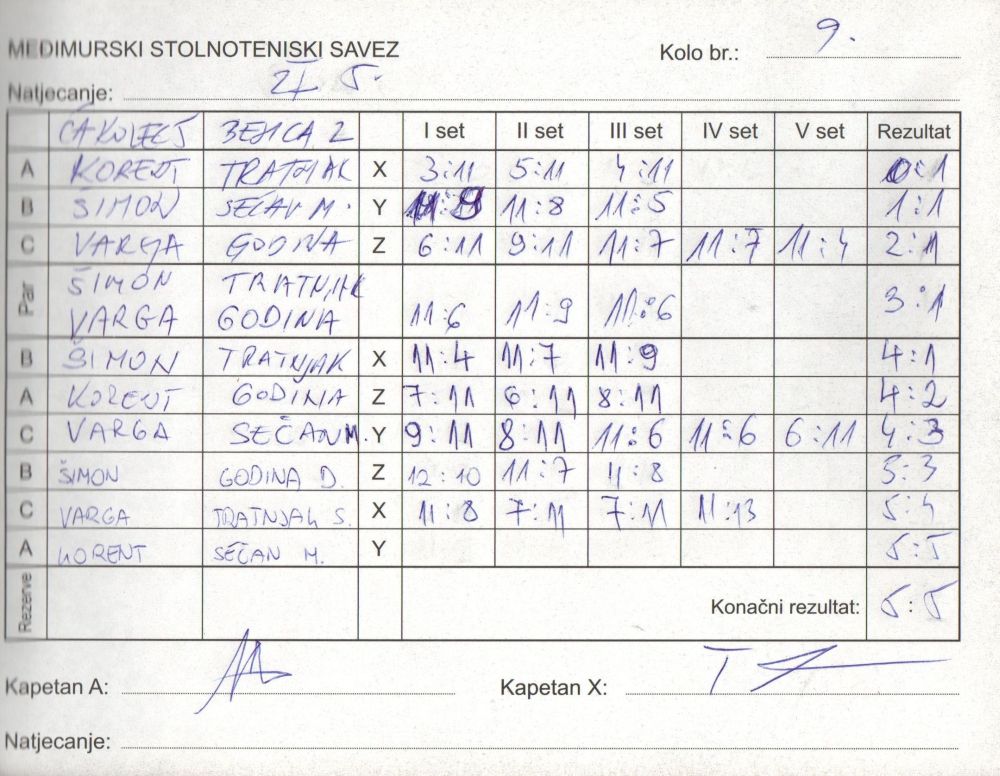 MEĐIMURSKI STOLNOTENISKI SAVEZ
Kolo br.: 9.
Natjecanje:
ČAKOVEC 5 BELICA 2 I set II set III set IV set V set Rezultat
A KORENT TRATNJAK X 3:11 5:11 4:11 0:1
B ŠIMON SEČAN M. Y 11:8 11:5 1:1
C VARGA GODINA Z 6:11 9:11 11:7 11:7 11:4 2:1
Par ŠIMON TRATNJAK
VARGA GODINA 11:6 11:9 11:6 3:1
B ŠIMON TRATNJAK X 11:4 11:7 11:9 4:1
A KORENT GODINA Z 7:11 6:11 8:11 4:2
C VARGA SEČAN M. Y 9:11 8:11 11:6 11:6 6:11 4:3
B ŠIMON GODINA D. Z 12:10 11:7 11:8 5:3
C VARGA TRATNJAK S. X 11:8 7:11 7:11 11:13 5:4
A KORENT SEČAN M. Y 5:5
Rezerve Konačni rezultat: 5:5
Kapetan A: Kapetan X:
Natjecanje: